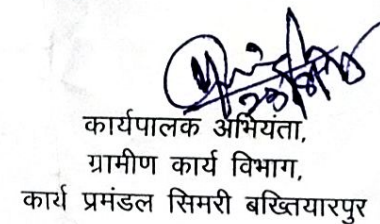 कार्यपालक अभियंता,
ग्रामीण कार्य विभाग,
कार्य प्रमंडल सिमरी बख्तियारपुर